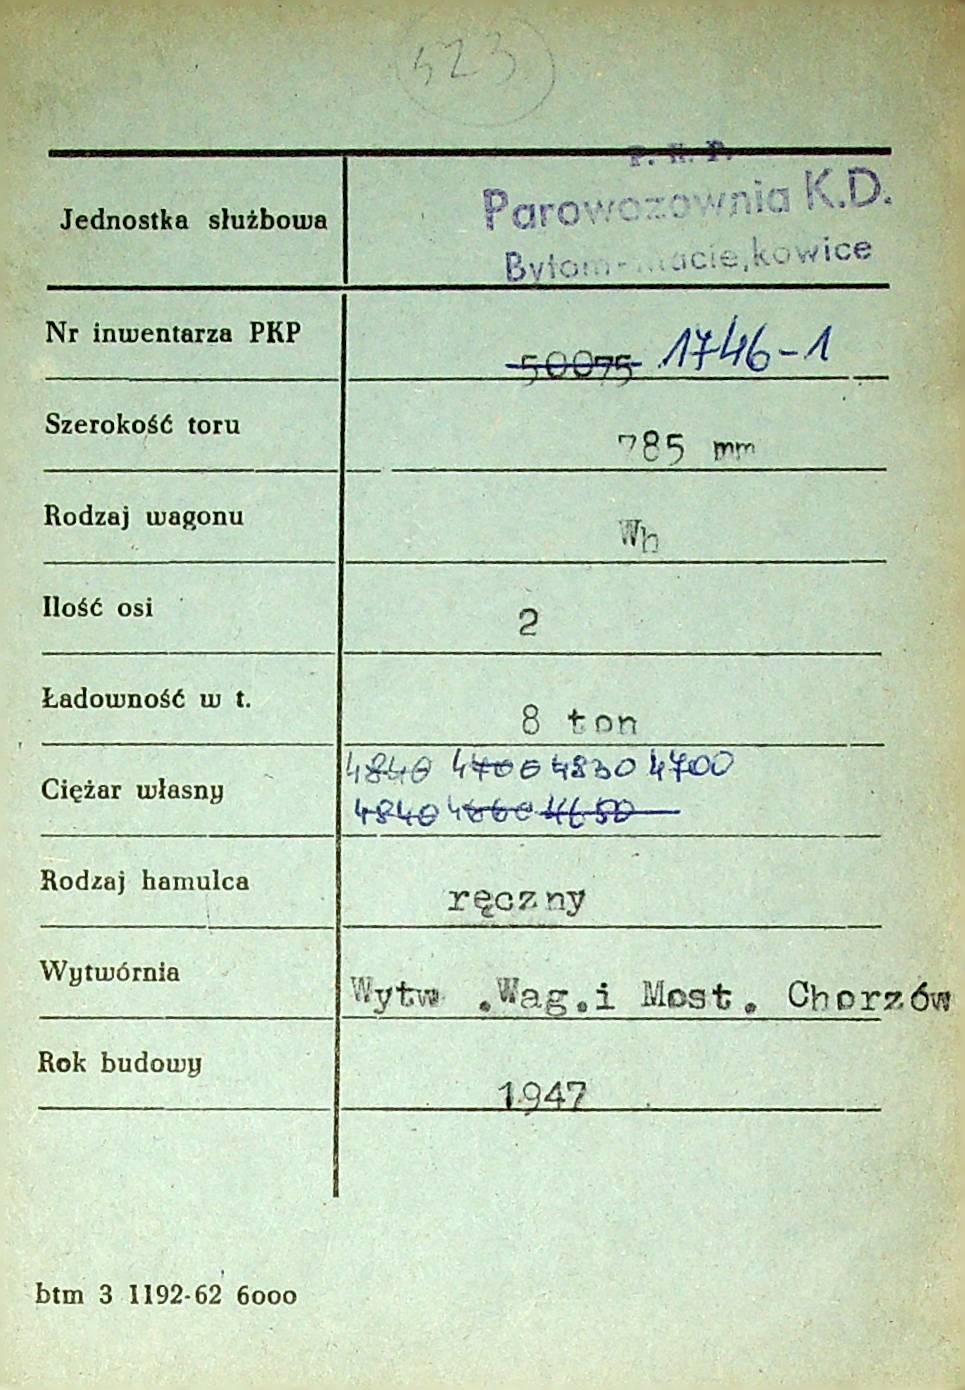 423
P. K. P.
Jednostka służbowa Parowozownia K.D.
Bytom-Maciejkowice
Nr inwentarza PKP 50075 1746-1
Szerokość toru 785 mm
Rodzaj wagonu Wh
Ilość osi 2
Ładowność w t. 8 ton
4840 4700 4830 4700
Ciężar własny 4840 4660 4650
Rodzaj hamulca ręczny
Wytwórnia Wytw .Wag.i Most. Chorzów
Rok budowy 1947
btm 3 1192-62 6000